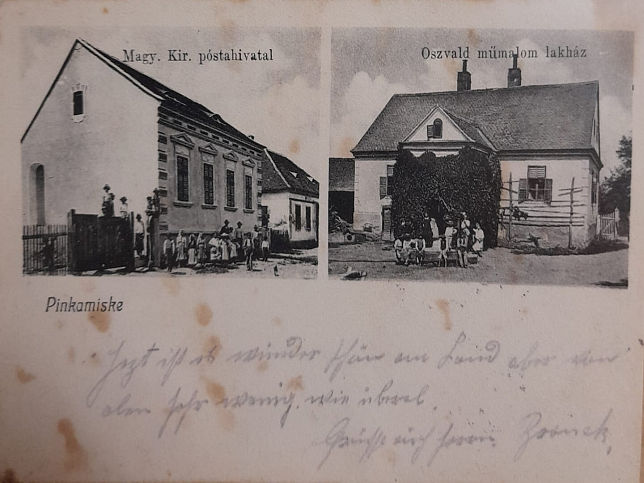 Magy. Kir. póstahivatal
Oszvald műmalom lakház
Pinkamiske
Jezt ist es wunder schön am Land aber von
allem sehr wenig wie überal.
Grüsse euch